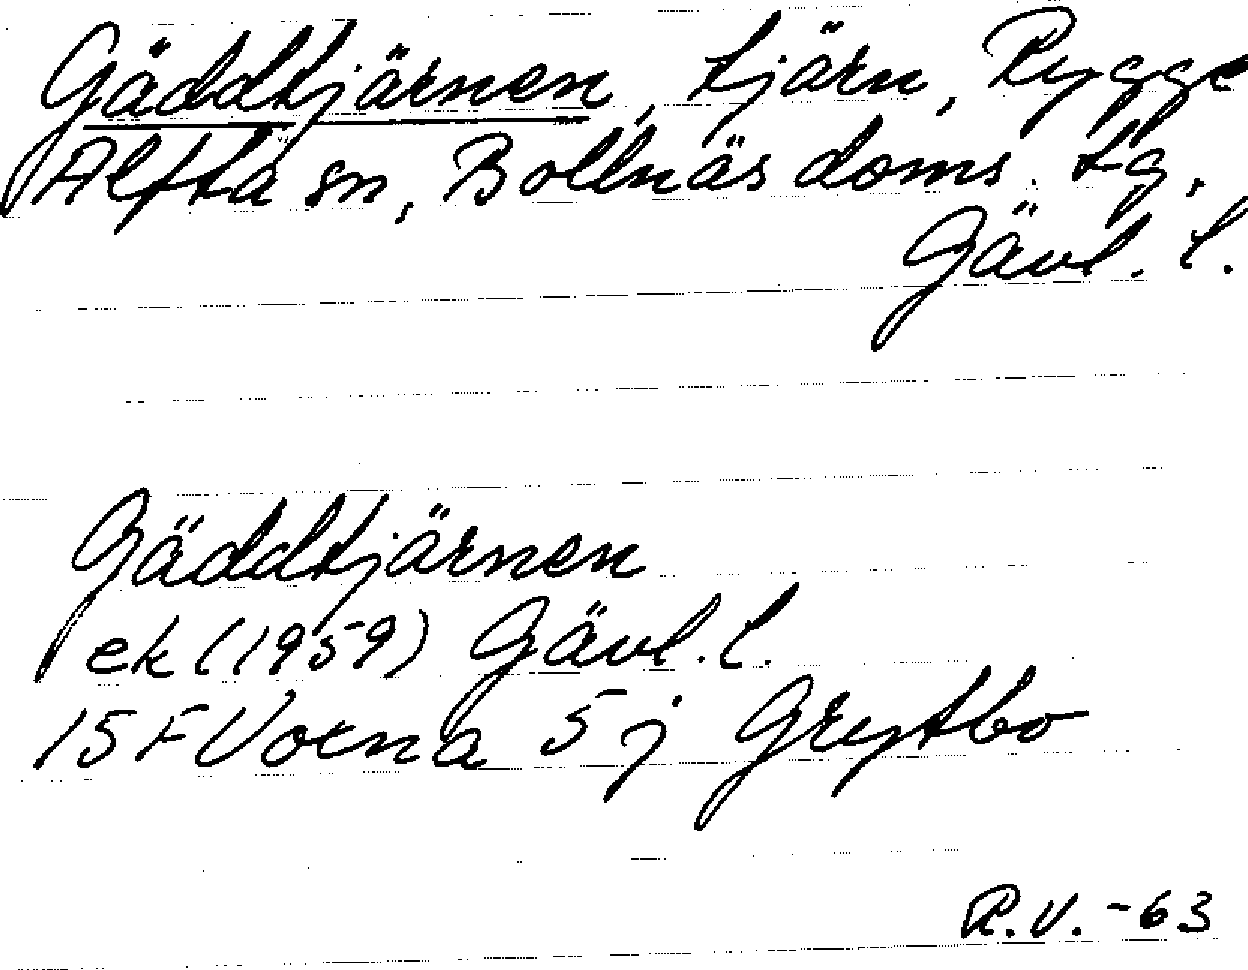 Gäddtjärnen, tjärn, Rygge
Alfta sn, Bollnäs doms. tg,
Gävl. l.
Gäddtjärnen
ek (1959) Gävl. l.
15 F Voxna 5 j Grytbo
R.V. -63